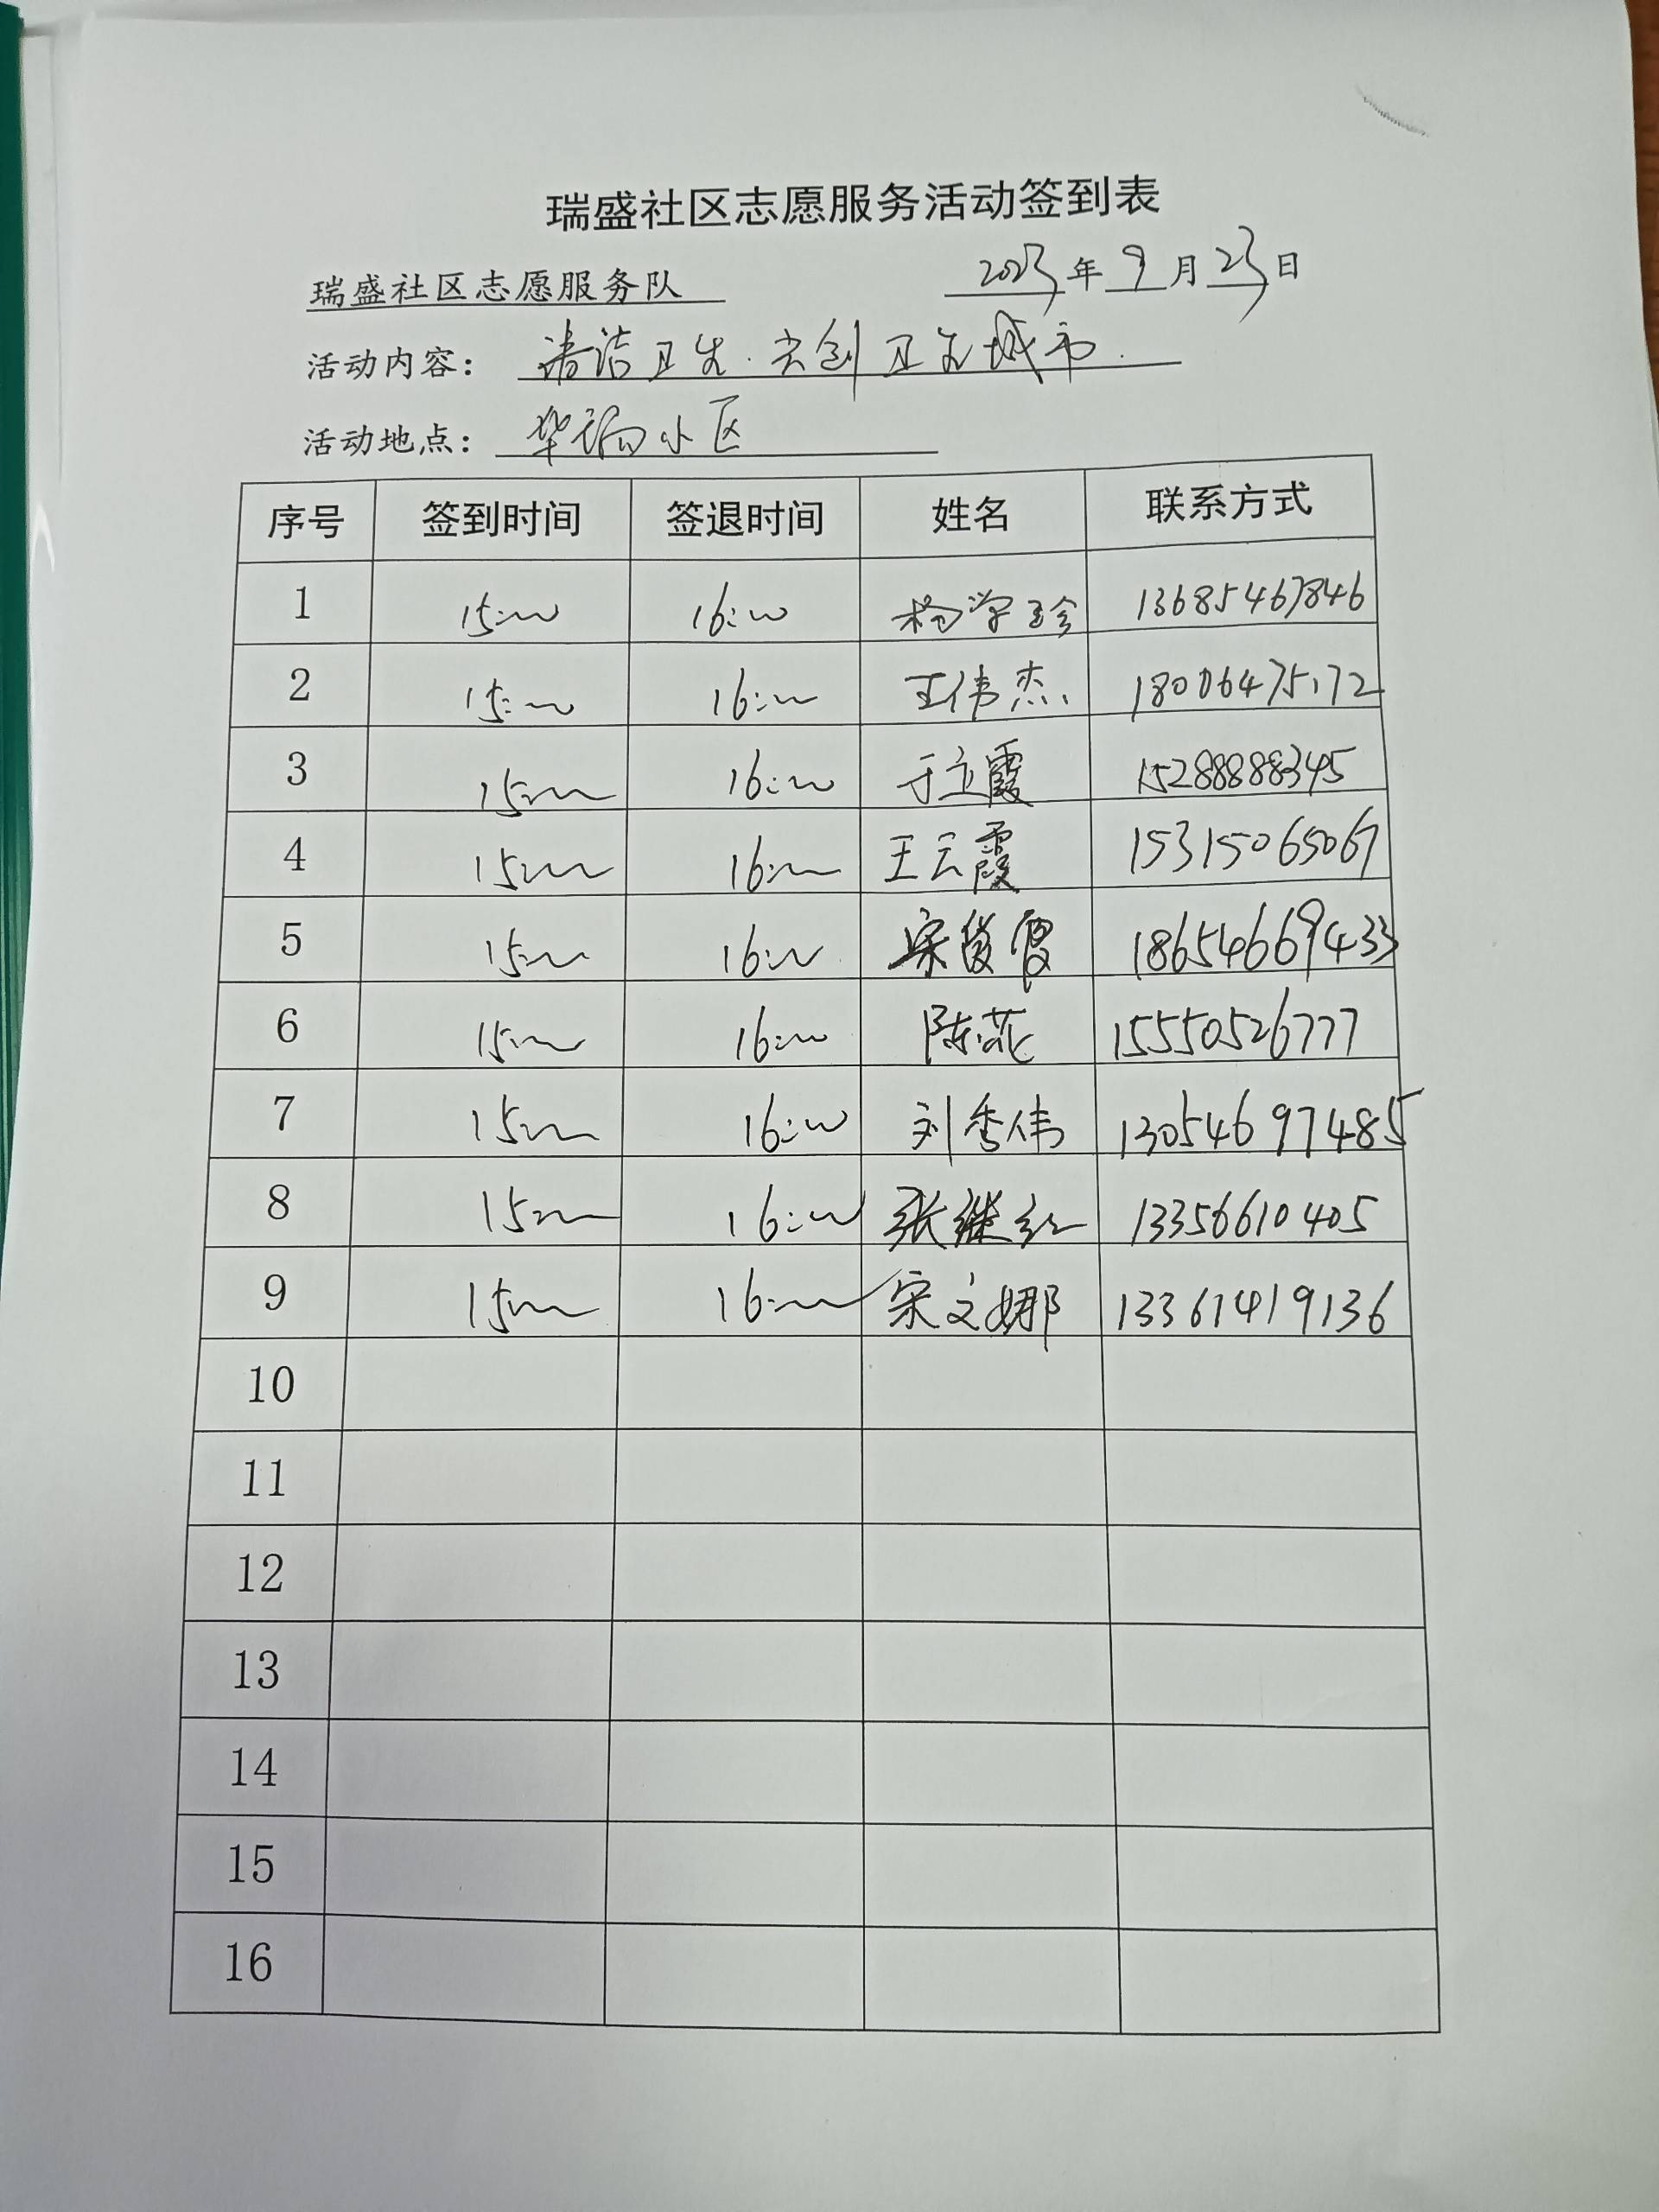 瑞盛社区志愿服务活动签到表
瑞盛社区志愿服务队 2023年9月23日
活动内容: 清洁卫生.共创卫生城市.
活动地点: 华瑞小区
序号 签到时间 签退时间 姓名 联系方式
1 15:00 16:00 杨学珍 13685467846
2 15:00 16:00 王伟杰 18006475172
3 15:00 16:00 于立霞 15288888345
4 15:00 16:00 王云霞 15315065067
5 15:00 16:00 宋俊霞 18654669433
6 15:00 16:00 陈花 15550526777
7 15:00 16:00 刘秀伟 13054697485
8 15:00 16:00 张继红 13356610405
9 15:00 16:00 宋文娜 13361419136
10
11
12
13
14
15
16